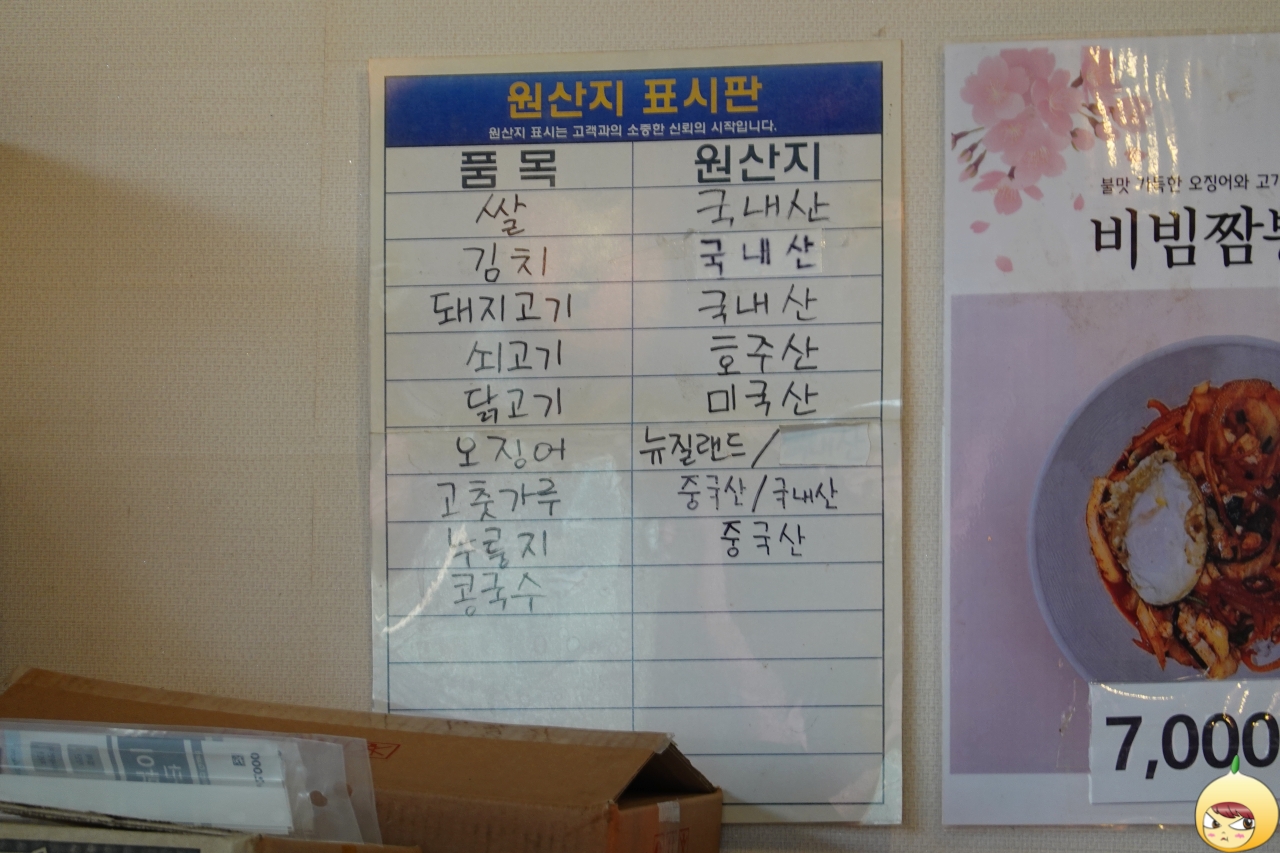 원산지 표시판
원산지 표시는 고객과의 소중한 신뢰의 시작입니다.
품목 원산지
쌀 국내산
김치 국내산
돼지고기 국내산
쇠고기 호주산
닭고기 미국산
오징어 뉴질랜드/
고춧가루 중국산/국내산
누룽지 중국산
콩국수
불맛 가득한 오징어와 고기
비빔짬뽕
7,000